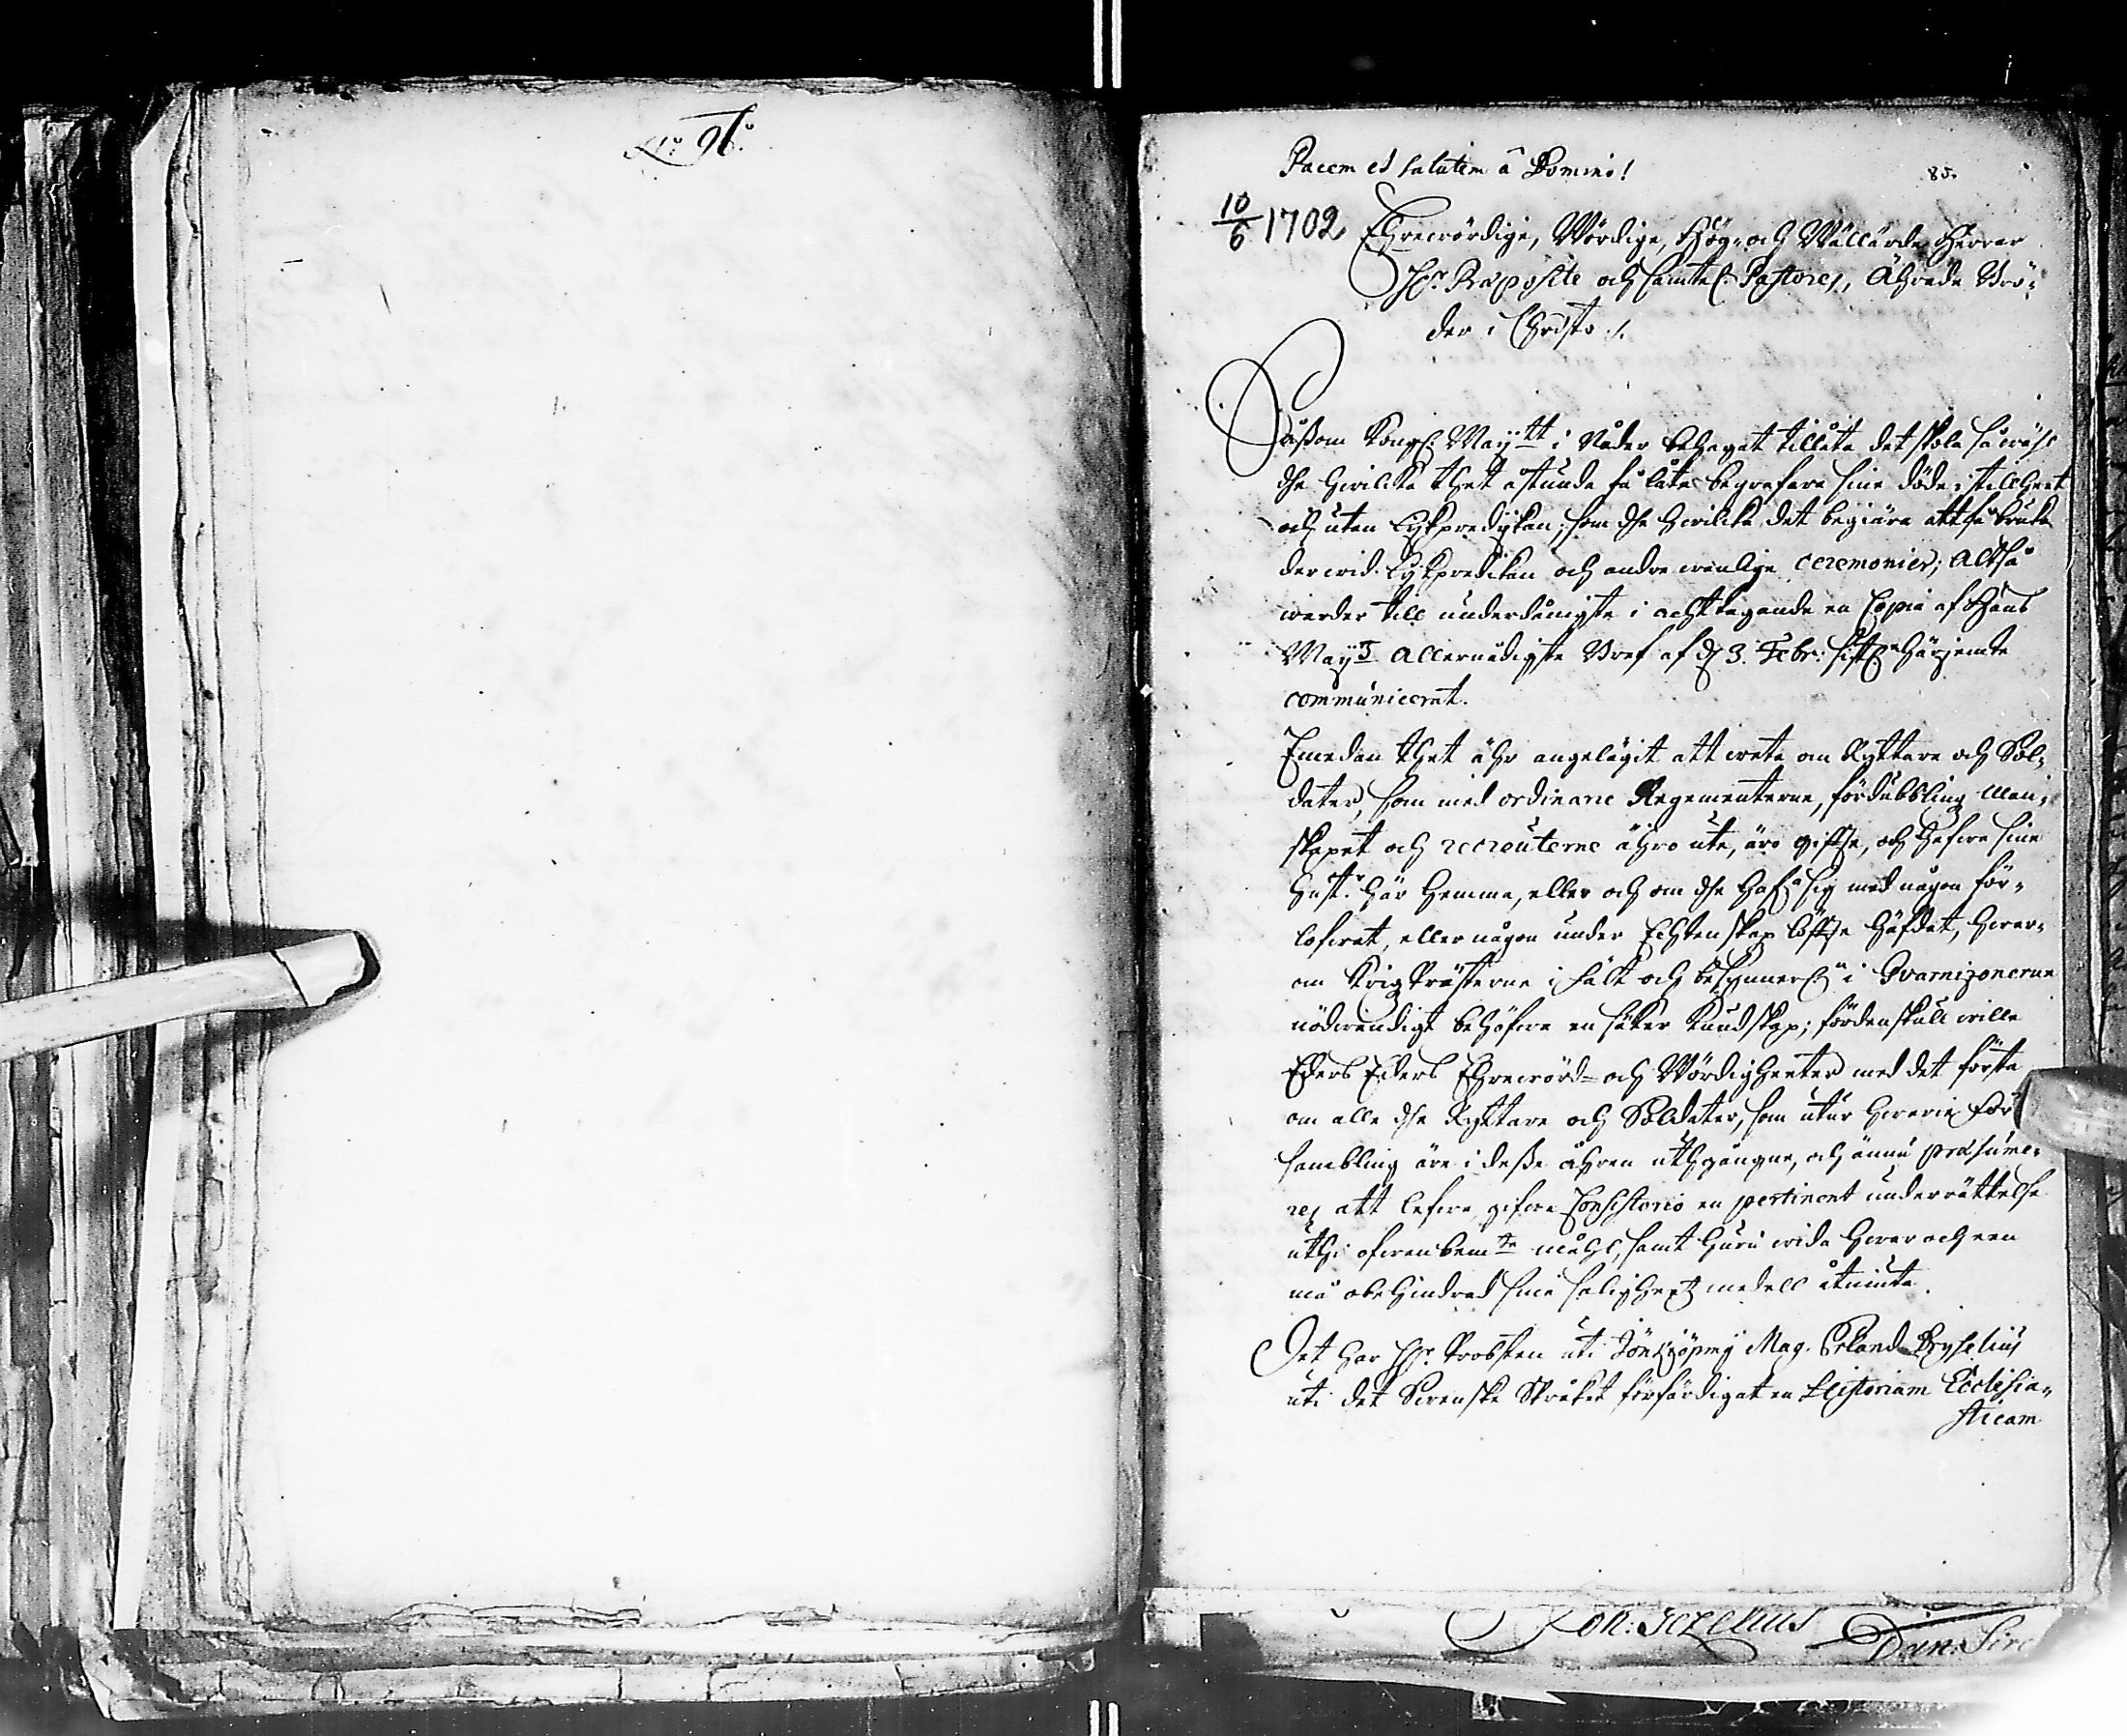 No 96.
Pacem et salutem â Domino!
85.
10/6 1702 Ehrewördige, Wördige, Hög- och Wällärde Herrar
Hr. Præposite och samtel. Pastores, Ährade Brö-
der i Christo ./.
Såßom Kongl. Maytt i Nåder behagat tillåta det skola så wähl
dhe hwilcka thet åstunda få låta begrafwa sine döde i stillheet
och uten Lykpredykan, som dhe hwilcka det begiära att få bruka
der wid Lykpredikan och andre wanlige ceremonier; Altså
warder till underdånigste i achttagande en Copia af Hans
Mayt allernådigste Bref af d 3. Febr: sistl. härjemte
communicerat.
Emedan thet ähr angelägit att weta om Ryttare och Sol-
dater, som med ordinarie Regementerne, fördubbling Man-
skapet och recreuterne ähro ute, äro giffte, och hafwa sine
hustr. här hemma, eller och om dhe hafa sig med någon för-
lofwat, eller någon under Echtenskap löffte häfdat, hwar-
om Krigzprästerne i fält och besynnerl. i Gvarnizonerne
nödwendigt behöfwa en säker Kundskap; fördenskull wille
Eders Eders Ehrewörd- och Wördigheeter med det första
om alle dhe Ryttare och Soldater, som utur hwarie För
sambling äre i deße åhren uthgångne, och ännu præsume-
res att lefwa, gifwa Consistorio en pertinent underrättelse
uthi ofwanbemte måhl, samt huru wida hwar och een
må obehindrad sine saligheetz medell åtniuta.
Det har Hr. Probsten uti Jönkjöping Mag. Erland Bryselius
uti det Swenske Språket förfärdigat en Historiam Ecclesia-
sticam
Joh: Gezelius Dan. Sire